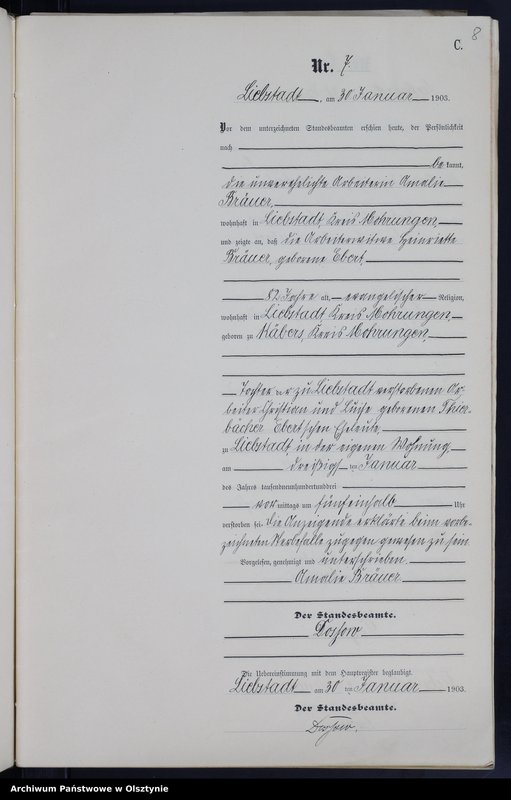 8
C.
Nr. 7
Liebstadt, am 30 Januar 1903.
Vor dem unterzeichneten Standesbeamten erschien heute, der Persönlichkeit
nach
be kannt,
die unverehelichte Arbeiterin Amalie
Bräuer,
wohnhaft in Liebstadt, Kreis Mohrungen,
und zeigte an, daß die Arbeiterwitwe Heinriette
Bräuer, geborene Ebert,
82 Jahre alt, evangelischer Religion,
wohnhaft in Liebstadt Kreis Mohrungen,
geboren zu Näbers, Kreis Mohrungen,
Tochter der zu Liebstadt verstorbenen Ar-
beiter Christian und Luise geborenen Thier-
bächer Ebert'schen Eheleute,
zu Liebstadt, in der eigenen Wohnung
am dreißigsten Januar
des Jahres tausendneunhundertunddrei
vor mittags um fünfeinhalb Uhr
verstorben sei. Die Anzeigende erklärte beim vorbe-
zeichneten Sterbefalle zugegen gewesen zu sein.
Vorgelesen, genehmigt und unterschrieben.
Amalie Bräuer
Der Standesbeamte.
Dossow
Die Uebereinstimmung mit dem Hauptregister beglaubigt.
Liebstadt am 30 ten Januar 1903.
Der Standesbeamte.
Dossow.
Archiwum Państwowe w Olsztynie